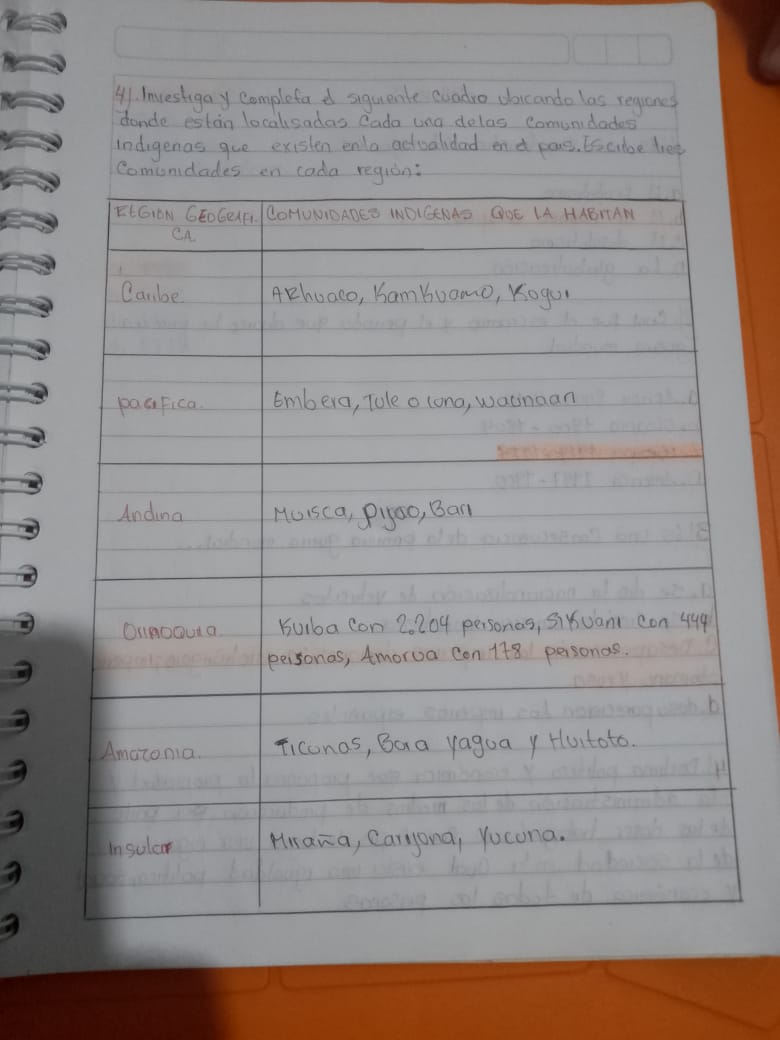 4) Investiga y completa el siguiente cuadro ubicando las regiones
donde están localisadas Cada una delas Comunidades
indigenas que existen enla actualidad en el pais. Escribe tres
Comunidades en cada región:
REGION GEOGRAFI.
CA.
COMUNIDADES INDIGENAS QUE LA HABITAN
Caribe
ARhuaco, KamKuamo, Kogui
pacifica.
Embera, Tule o cuna, waunaan
Andina
Muisca, pijao, Bari
Orinoquia.
Kuiba con 2.204 personas, SiKuani con 444
personas, Amorua con 178 personas.
Amazonia.
Ticunas, Bora yagua y Huitoto.
Insular
Miraña, Carijona, Yucuna.